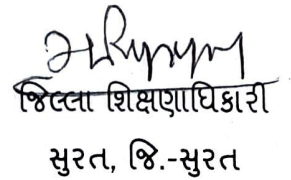 જિલ્લા શિક્ષણાધિકારી
સુરત, જિ.-સુરત